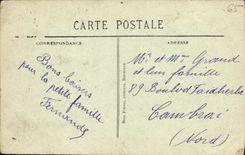 65
CARTE POSTALE
CORRESPONDANCE
ADRESSE
Bons baisers
pour la petite famille
Fernande
Mr et Mme Grand
et leur famille
89 Boulevd Faidherbe
Cambrai
(Nord)